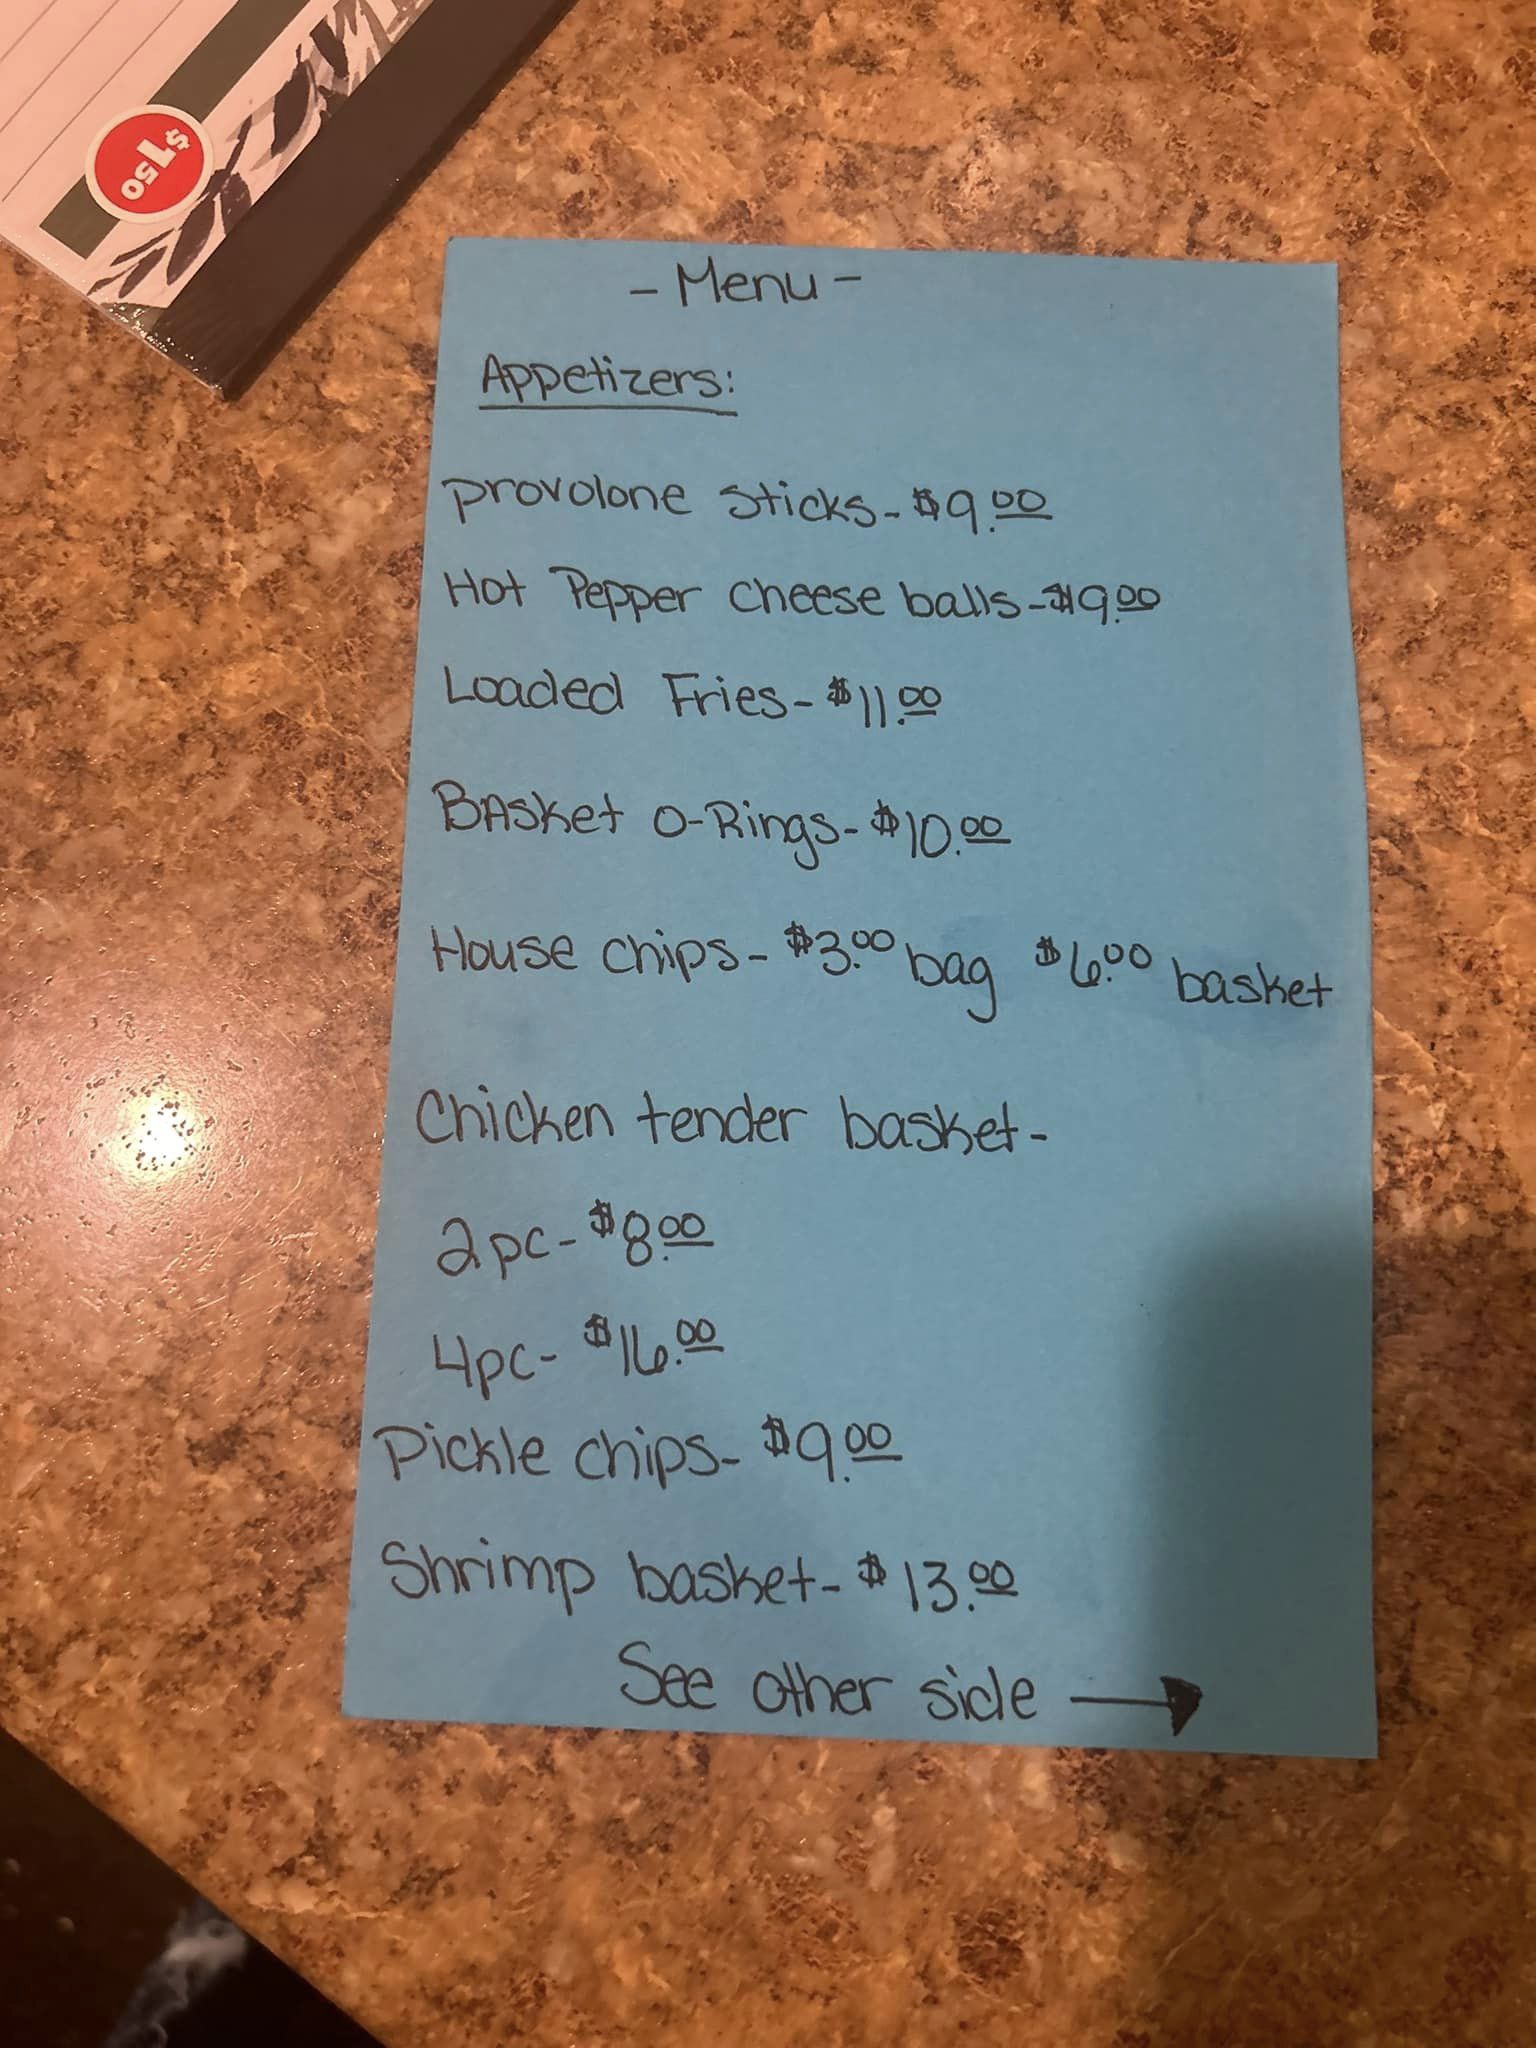 $150
- Menu -
Appetizers:
Provolone Sticks - $9.00
Hot Pepper Cheese balls - $9.00
Loaded Fries - $11.00
BAsket O-Rings - $10.00
House chips - $3.00 bag $6.00 basket
Chicken tender basket -
2pc - $8.00
4pc - $16.00
Pickle chips - $9.00
Shrimp basket - $13.00
See other side →